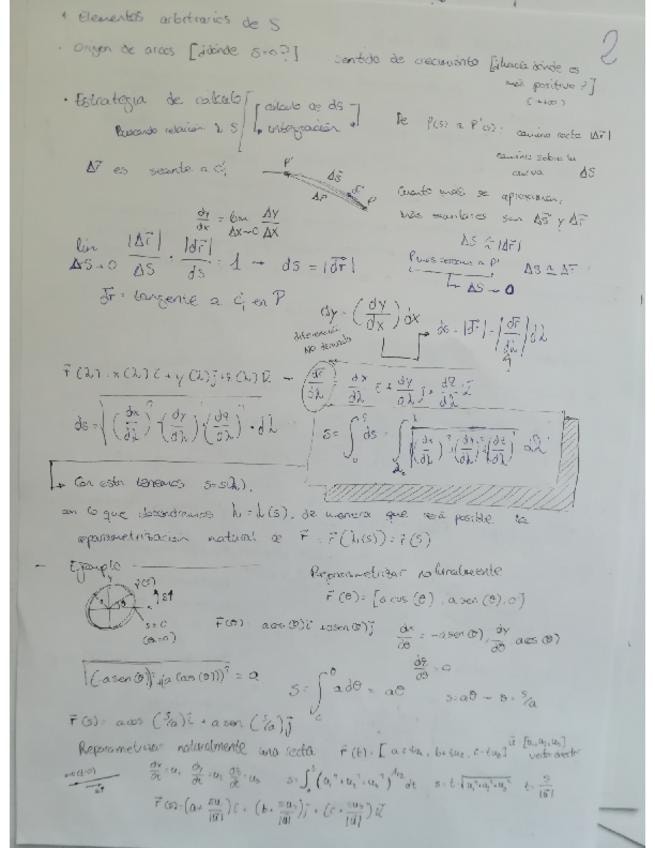 Elementos arbitrarios de S
2
· Origen de arcos [¿dónde s=0?] sentido de crecimiento [¿hacia dónde es
más positivo?]
(→+∞)
· Estrategia de cálculo [cálculo de ds
Buscando relación λ S integración]
De P(s) a P'(s): camino recto |Δr⃗|
camino sobre la
curva ΔS
Δr⃗ es secante a C,
P' ΔS⃗
Δr P
Cuanto más se aproximan,
más similares son ΔS⃗ y Δr⃗
dy/dx = lim Δx→0 Δy/Δx
ΔS ≈ |Δr⃗|
lim ΔS→0 |Δr⃗|/ΔS = |dr⃗|/ds = 1 → ds = |dr⃗|
ΔS ≈ Δr⃗
ΔS → 0
dr⃗ = tangente a C, en P
dy = (dy/dx) dx
diferencial
NO derivada
ds = |dr⃗| = |dr⃗/dλ| dλ
r⃗(λ) = x(λ)i + y(λ)j + z(λ)k → dr⃗/dλ = dx/dλ i + dy/dλ j + dz/dλ k
ds = √((dx/dλ)² + (dy/dλ)² + (dz/dλ)²) · dλ
s = ∫₀ˢ ds = ∫ √((dx/dλ)² + (dy/dλ)² + (dz/dλ)²) dλ
↳ Con esto tenemos s=s(λ),
con lo que obtendremos λ=λ(s), de manera que será posible la
reparametrización natural de r⃗ = r⃗(λ(s)) = r⃗(s)
- Ejemplo
Reparametrizar naturalmente
r⃗(θ) = [a cos(θ), a sen(θ), 0]
s=0
(θ=0)
r⃗(θ) = a cos(θ)i + a sen(θ)j
dx/dθ = -a sen(θ), dy/dθ = a cos(θ)
dz/dθ = 0
√((-a sen(θ))² + (a cos(θ))²) = a
s = ∫₀^θ a dθ = aθ
s = aθ → θ = s/a
r⃗(s) = a cos(s/a)i + a sen(s/a)j
Reparametrizar naturalmente una recta r⃗(t) = [a+tu₁, b+tu₂, c+tu₃] u⃗ [u₁,u₂,u₃]
vector director
dx/dt = u₁ dy/dt = u₂ dz/dt = u₃ s = ∫₀ᵗ (u₁² + u₂² + u₃²)^1/2 dt s = t·√(u₁²+u₂²+u₃²) t = s/|u⃗|
r⃗(s) = (a + su₁/|u⃗|)i + (b + su₂/|u⃗|)j + (c + su₃/|u⃗|)k